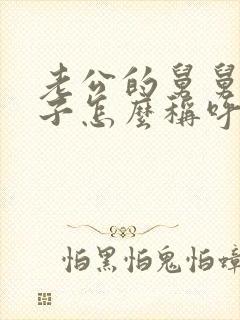 老公的舅舅
子怎麽稱呼
怕黑怕鬼怕蟑